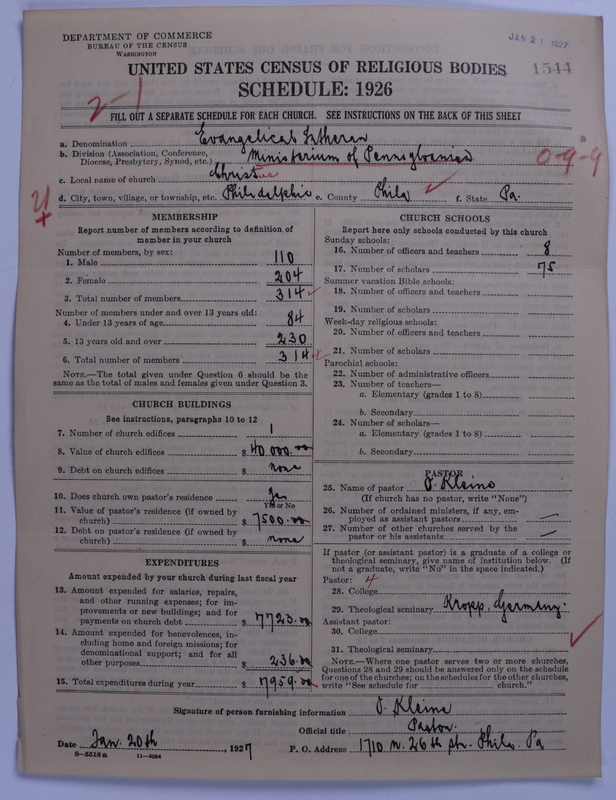 DEPARTMENT OF COMMERCE
BUREAU OF THE CENSUS
WASHINGTON
JAN 21 1927
1544
UNITED STATES CENSUS OF RELIGIOUS BODIES
SCHEDULE: 1926
2-1
FILL OUT A SEPARATE SCHEDULE FOR EACH CHURCH. SEE INSTRUCTIONS ON THE BACK OF THIS SHEET
a. Denomination Evangelical Lutheran
b. Division (Association, Conference, Diocese, Presbytery, Synod, etc.) Ministerium of Pennsylvania
0-9-9
c. Local name of church Christ
d. City, town, village, or township, etc. Philadelphia e. County Phila f. State Pa.
MEMBERSHIP
Report number of members according to definition of member in your church
Number of members, by sex:
1. Male 110
2. Female 204
3. Total number of members 314
Number of members under and over 13 years old:
4. Under 13 years of age 84
5. 13 years old and over 230
6. Total number of members 314
NOTE.—The total given under Question 6 should be the same as the total of males and females given under Question 3.
CHURCH BUILDINGS
See instructions, paragraphs 10 to 12
7. Number of church edifices 1
8. Value of church edifices $ 40 000.00
9. Debt on church edifices $ none
10. Does church own pastor's residence yes
Yes or No
11. Value of pastor's residence (if owned by church) $ 7500.00
12. Debt on pastor's residence (if owned by church) $ none
EXPENDITURES
Amount expended by your church during last fiscal year
13. Amount expended for salaries, repairs, and other running expenses; for improvements or new buildings; and for payments on church debt $ 7723.00
14. Amount expended for benevolences, including home and foreign missions; for denominational support; and for all other purposes $ 236.00
15. Total expenditures during year $ 7959.00
CHURCH SCHOOLS
Report here only schools conducted by this church
Sunday schools:
16. Number of officers and teachers 8
17. Number of scholars 75
Summer vacation Bible schools:
18. Number of officers and teachers
19. Number of scholars
Week-day religious schools:
20. Number of officers and teachers
21. Number of scholars
Parochial schools:
22. Number of administrative officers
23. Number of teachers—
a. Elementary (grades 1 to 8)
b. Secondary
24. Number of scholars—
a. Elementary (grades 1 to 8)
b. Secondary
PASTOR
25. Name of pastor O. Kleine
(If church has no pastor, write "None")
26. Number of ordained ministers, if any, employed as assistant pastors —
27. Number of other churches served by the pastor or his assistants —
If pastor (or assistant pastor) is a graduate of a college or theological seminary, give name of institution below. (If not a graduate, write "No" in the space indicated.)
Pastor: 4
28. College
29. Theological seminary Kropp, Germany.
Assistant pastor:
30. College
31. Theological seminary
NOTE.—Where one pastor serves two or more churches, Questions 28 and 29 should be answered only on the schedule for one of the churches; on the schedules for the other churches, write "See schedule for ........ church."
Signature of person furnishing information O. Kleine
Official title Pastor.
Date Jan. 20th, 1927 P. O. Address 1710 N. 26th str. Phila. Pa
8—5518a 11—9034